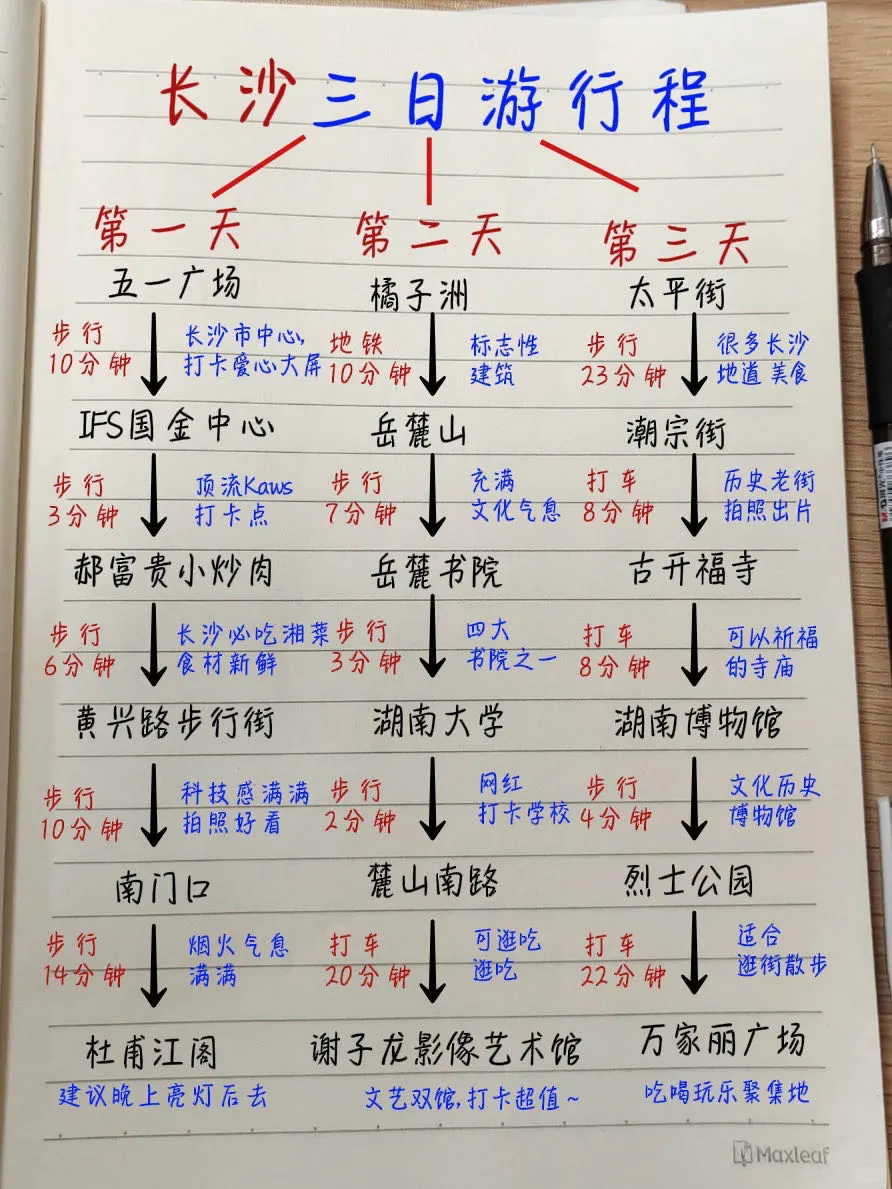 长沙三日游行程
第一天
五一广场
步行
10分钟
长沙市中心,
打卡爱心大屏
IFS国金中心
步行
3分钟
顶流Kaws
打卡点
郝富贵小炒肉
步行
6分钟
长沙必吃湘菜
食材新鲜
黄兴路步行街
步行
10分钟
科技感满满
拍照好看
南门口
步行
14分钟
烟火气息
满满
杜甫江阁
建议晚上亮灯后去
第二天
橘子洲
地铁
10分钟
标志性
建筑
岳麓山
步行
7分钟
充满
文化气息
岳麓书院
步行
3分钟
四大
书院之一
湖南大学
步行
2分钟
网红
打卡学校
麓山南路
打车
20分钟
可逛吃
逛吃
谢子龙影像艺术馆
文艺双馆,打卡超值~
第三天
太平街
步行
23分钟
很多长沙
地道美食
潮宗街
打车
8分钟
历史老街
拍照出片
古开福寺
打车
8分钟
可以祈福
的寺庙
湖南博物馆
步行
4分钟
文化历史
博物馆
烈士公园
打车
22分钟
适合
逛街散步
万家丽广场
吃喝玩乐聚集地
Maxleaf